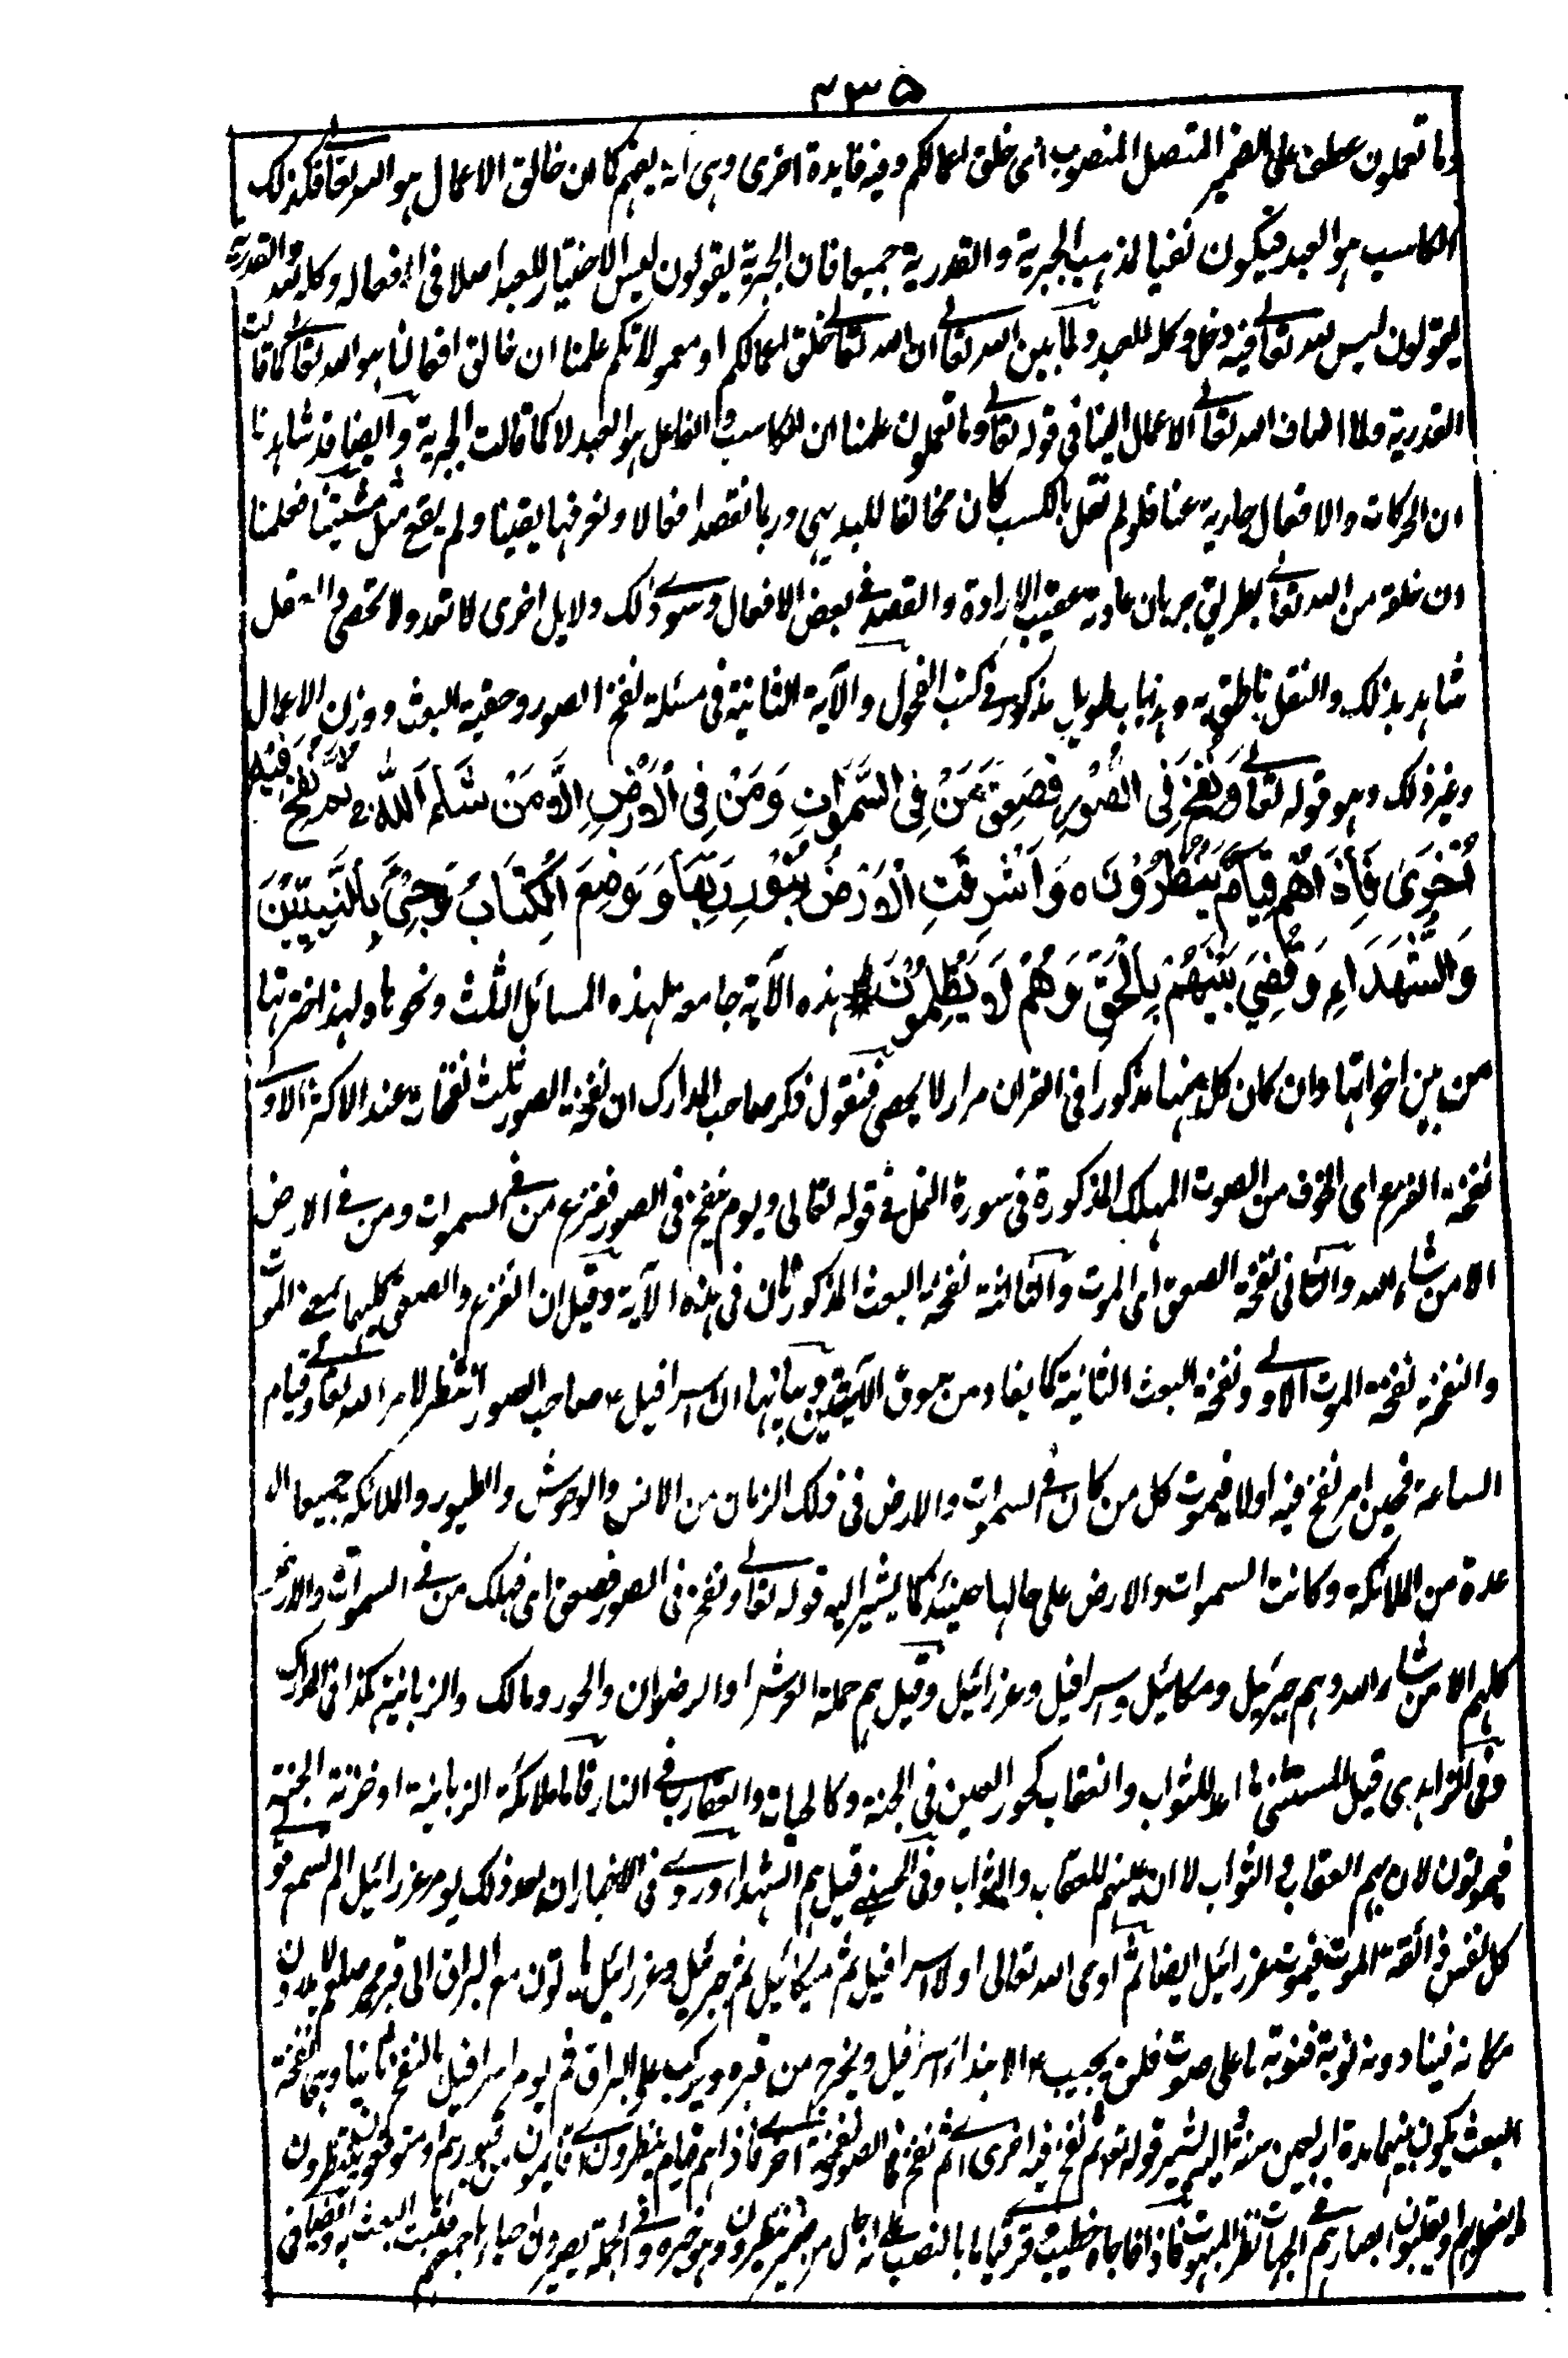 ۴۳۵
وما تعملون عطف على الضمير المتصل المنصوب اى خلق اعمالكم وفيه فايدة اخرى وهى انه يفهم كما ان خالق الاعمال هو الله تعالى فكذلك
الكاسب هو العبد فيكون نفيا لمذهب الجبرية والقدرية جميعا فان الجبرية يقولون ليس الاختيار للعبد اصلا فى الافعال وكله لله والقدرية
يقولون ليس لله تعالى فيه دخل وكله للعبد ولما بين الله تعالى ان الله تعالى خلق اعمالكم او معمولاتكم علمنا ان خالق افعالنا هو الله تعالى لا كما قالت
القدرية ولما اضاف الله تعالى الاعمال الينا فى قوله تعالى وما تعملون علمنا ان الكاسب والفاعل هو العبد لا كما قالت الجبرية وايضا قد شاهدنا
ان الحركات والافعال جارية عنا فلو لم نقل بالكسب كان مخالفا للبديهى وربما نقصد افعالا ونعرفها يقينا ولم يقع مثل مشيتنا فعلمنا
ان خلقه من الله تعالى بطريق جريان عادته عقيب الارادة والقصد فى بعض الافعال وسوى ذلك دلايل اخرى لا تعد ولا تحصى والعقل
شاهد بذلك والنقل ناطق به وهذا باب طويل مذكور فى كتب الفحول والآية الثانية فى مسئلة نفخ الصور وحقية البعث ووزن الاعمال
وغير ذلك وهو قوله تعالى وَنُفِخَ فِى الصُّوْرِ فَصَعِقَ مَنْ فِى السَّمٰوَاتِ وَمَنْ فِى الْاَرْضِ اِلَّا مَنْ شَاءَ اللّٰهُ ثُمَّ نُفِخَ فِيْهِ
اُخْرٰى فَاِذَا هُمْ قِيَامٌ يَّنْظُرُوْنَ ه وَاَشْرَقَتِ الْاَرْضُ بِنُوْرِ رَبِّهَا وَوُضِعَ الْكِتَابُ وَجِىْءَ بِالنَّبِيّٖنَ
وَالشُّهَدَاءِ وَقُضِىَ بَيْنَهُمْ بِالْحَقِّ وَهُمْ لَا يُظْلَمُوْنَ هذه الآية جامعة لهذه المسائل الثلث ونحوها ولهذا اخترتها
من بين اخواتها وان كان كل منها مذكورا فى القران مرارا لا يحصى فنقول ذكر صاحب المدارك ان نفخة الصور ثلث نفخات عند الاكثر الاولى
نفخة الفزع اى الخوف من الصوت المهلك المذكورة فى سورة النمل فى قوله تعالى ويوم ينفخ فى الصور ففزع من فى السموات ومن فى الارض
الا من شاء الله والثانى نفخة الصعق اى الموت والثالثة نفخة البعث المذكورتان فى هذه الآية وقيل ان الفزع والصعق كليهما بمعنى الموت
والنفخة نفخة الموت الاولى ونفخة البعث الثانية كما يفاد من سوق الآيتين وبيانها ان اسرافيل ع صاحب الصور انتظر لامر الله تعالى وقيام
الساعة فحين امر نفخ فيه اولا فيموت كل من كان فى السموات والارض فى ذلك الزمان من الانس والوحوش والطيور والملائكة جميعا الا
عدة من الملائكة وكانت السموات والارض على حالها حينئذ كما يشير اليه قوله تعالى ونفخ فى الصور فصعق اى فهلك من فى السموات والارض
كلهم الا من شاء الله وهم جبرئيل وميكائيل واسرافيل وعزرائيل وقيل هم حملة العرش او الرضوان والحور ومالك والزبانية كذا فى المدارك
وفى الزاهدى قيل المستثنى ما اعد للثواب والعقاب كحور العين فى الجنة وكالحيات والعقارب فى النار فاما ملائكة الزبانية او خزنة الجنة
فيموتون لان بهم العقاب والثواب لا ان عينهم للعقاب والثواب وفى الحسينى قيل هم الشهداء وروى فى الاخبار ان بعد ذلك يومر عزرائيل الم تسمع قولى
كل نفس ذائقة الموت فيموت عزرائيل ايضا ثم اوحى الله تعالى اولا اسرافيل ثم ميكائيل ثم جبرئيل وعزرائيل ياتون مع البراق الى قبر محمد صلعم
مكانه فينادونه نوبة فنوبة باعلى صوت فلن يجيب الا بنداء اسرافيل ويخرج من قبره ويركب على البراق ثم يومر اسرافيل بالنفخ ثانيا وهى نفخة
البعث يكون بينهما مدة اربعين سنة واليه يشير قوله تعالى ثم نفخ فيه اخرى اى ثم نفخ فى الصور نفخة اخرى فاذا هم قيام ينظرون اى قايمون من قبورهم او متوقفون ينتظرون
ما يفعل بهم او يقلبون ابصارهم فى الجهات نظر المبهوت اذا فاجاه خطب وقرئ قياما بالنصب على انه حال من ضمير ينظرون وهو خبره وفى الجملة يصيرون احياء باجمعهم فثبت البعث به وايضا فى